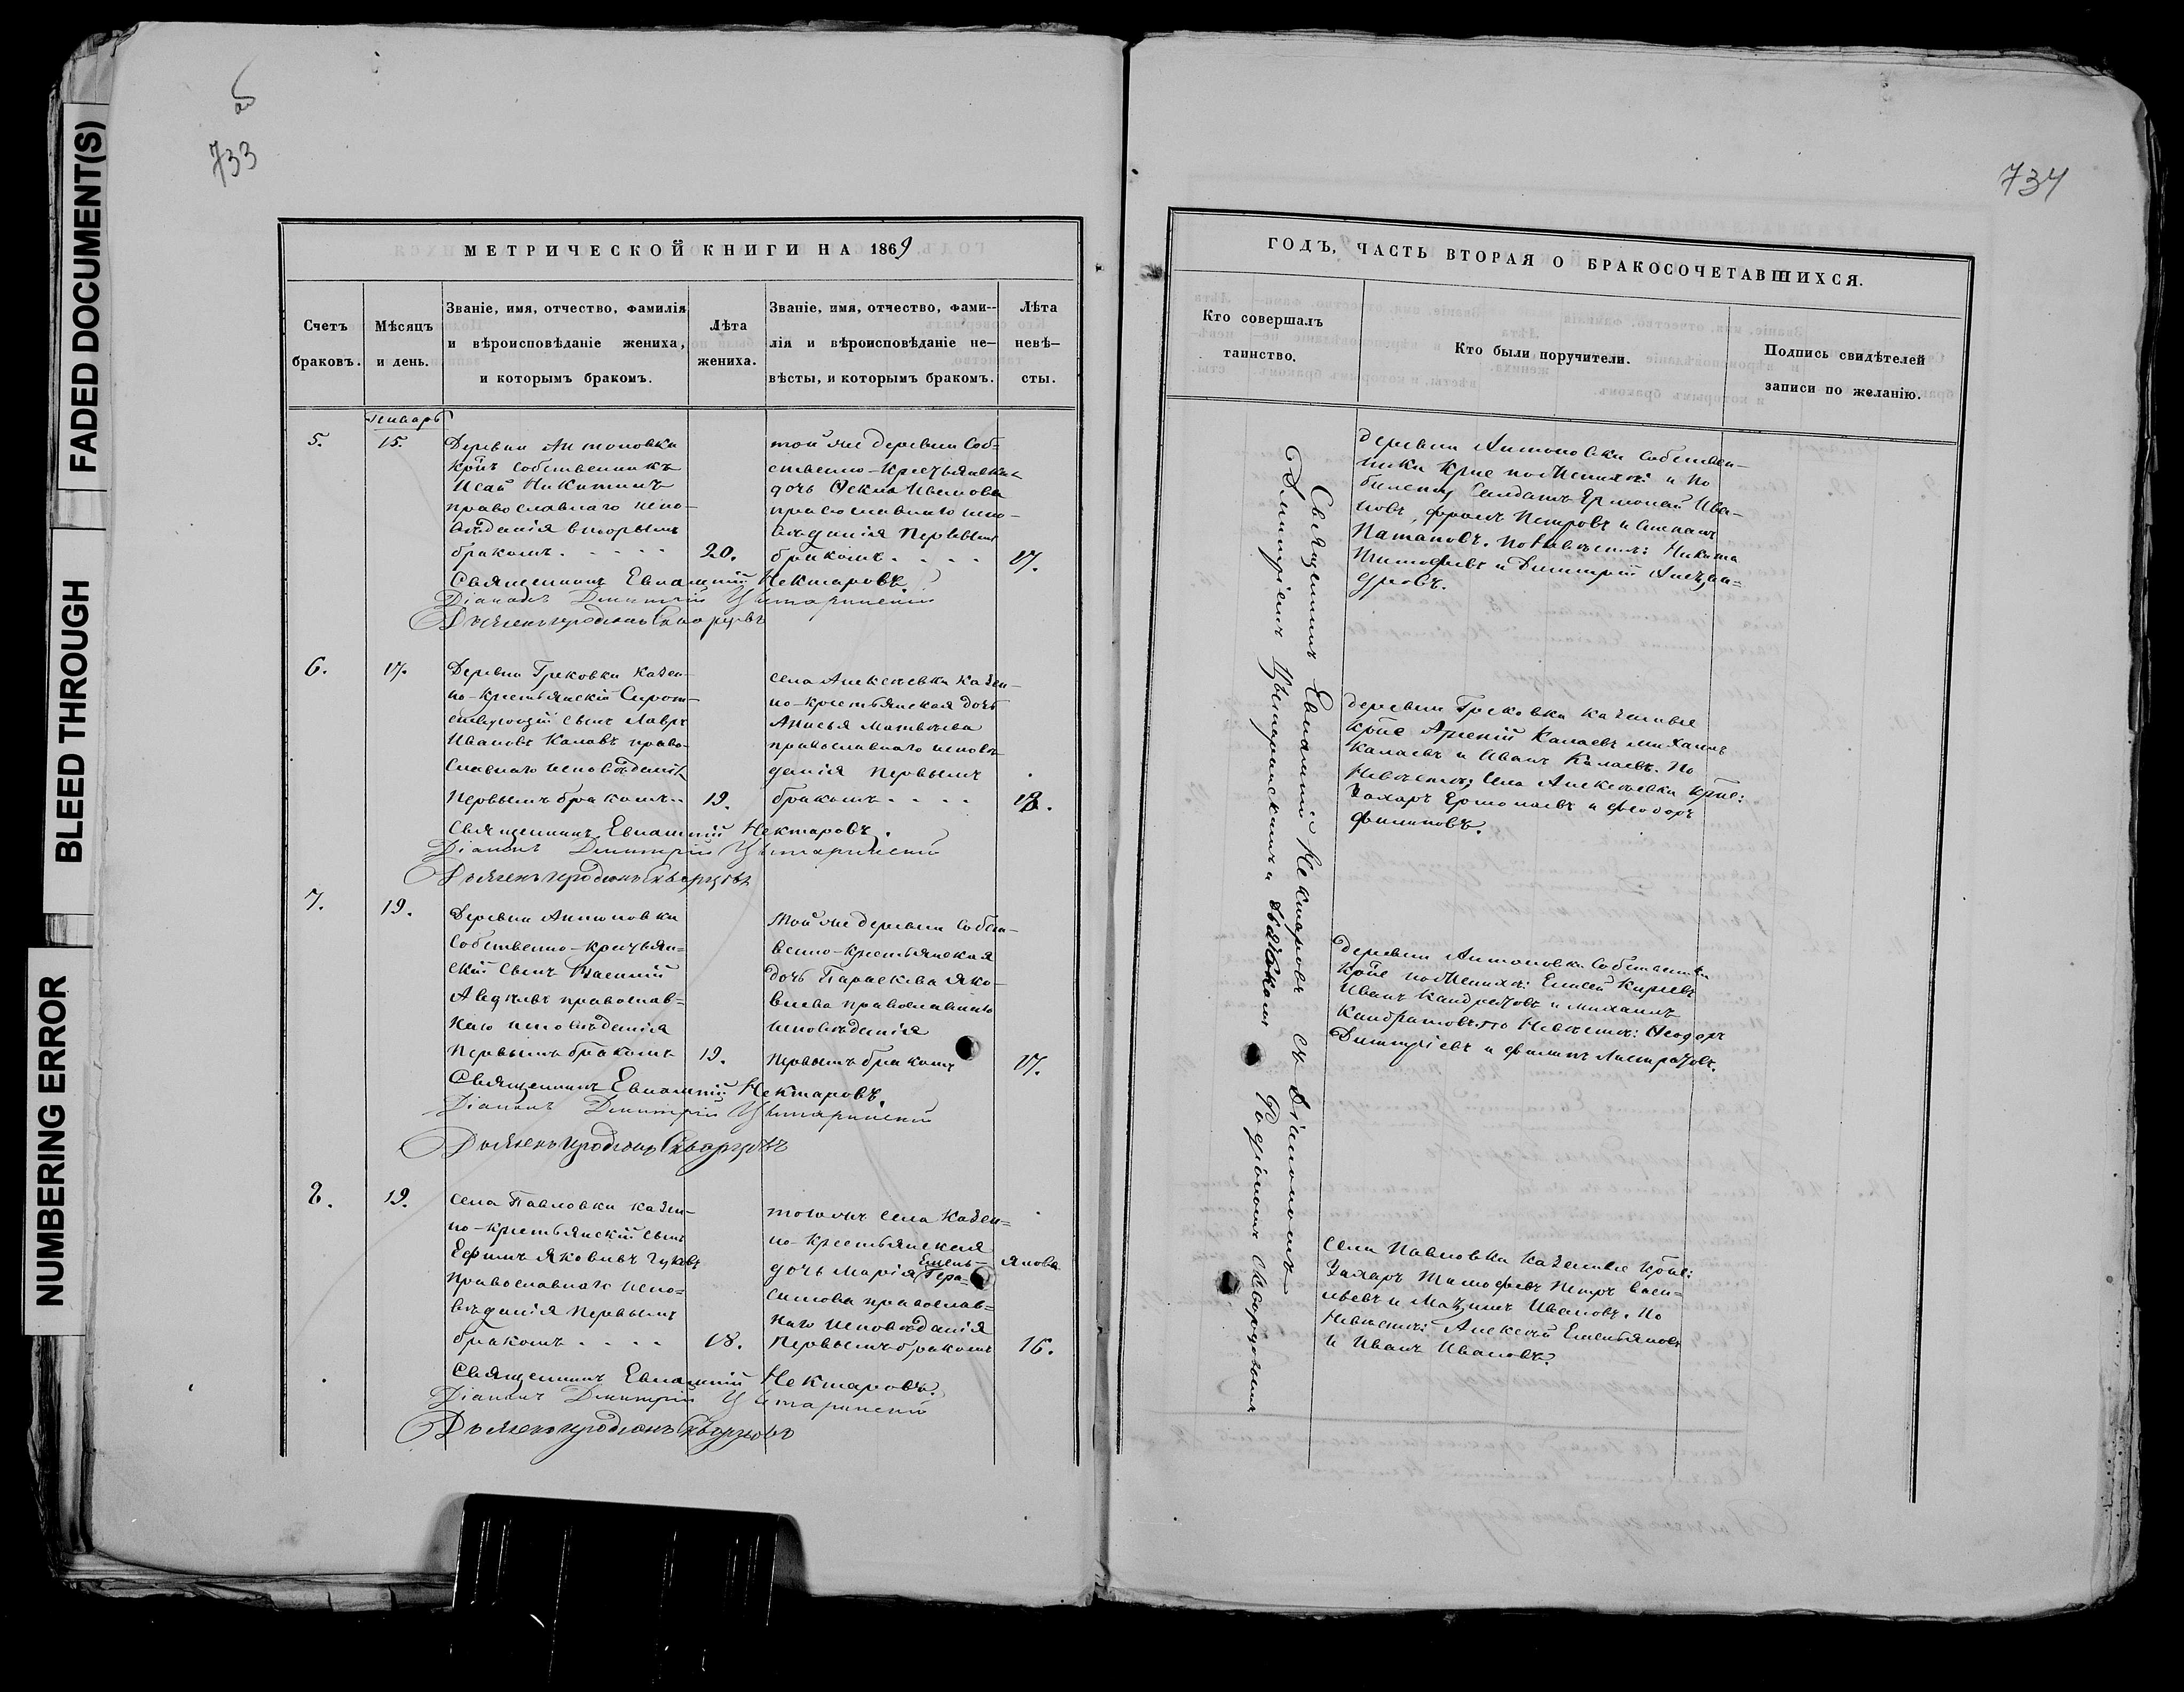 FADED DOCUMENT(S)
BLEED THROUGH
NUMBERING ERROR
733
МЕТРИЧЕСКОЙ КНИГИ НА 1869
Счетъ браковъ.
Мѣсяцъ и день.
Званіе, имя, отчество, фамилія
и вѣроисповѣданіе жениха,
и которымъ бракомъ.
Лѣта жениха.
Званіе, имя, отчество, фами-
лія и вѣроисповѣданіе не-
вѣсты, и которымъ бракомъ.
Лѣта невѣ-
сты.
Январь
5.
15.
Деревни Антоновки
Крṅъ собственникъ
Исай Никитинъ
православнаго испо-
вѣданія вторымъ
бракомъ. - - - -
20.
той же деревни Соб=
ственно-Крестьянская
дочь Ѳекла Иванова
православнаго испо-
вѣданія первымъ
бракомъ. - - -
17.
Священникъ Евлампій Нектаровъ
Діаконъ Димитрій Цитаринскій
Дьячекъ Иродіонъ Скворцовъ
6.
17.
Деревни Грековки Казен-
но-крестьянскій Сирот-
ствующій сынъ Лавръ
Ивановъ Калаевъ право-
славнаго исповѣданія
первымъ бракомъ..
19.
села Алексѣевки Казен-
но-крестьянская дочь
Анисья Матвѣева
православнаго исповѣ-
данія первымъ
бракомъ. - - -
18.
Священникъ Евлампій Нектаровъ.
Діаконъ Димитрій Цитаринскій
Дьячекъ Иродіонъ Скворцовъ
7.
19.
Деревни Антоновки
Собственно-крестьян=
скій сынъ Василій
Авдѣевъ православ=
наго исповѣданія
первымъ бракомъ
19.
Той же деревни Собст-
венно-крестьянская
дочь Параскева Яко-
влева православнаго
исповѣданія
первымъ бракомъ
17.
Священникъ Евлампій Нектаровъ.
Діаконъ Димитрій Цитаринскій
Дьячекъ Иродіонъ Скворцовъ
8.
19.
села Павловки казен-
но-крестьянскій сынъ
Ефимъ Яковлевъ
православнаго испо=
вѣданія первымъ
бракомъ - - - -
18.
того же села Казен=
но-крестьянская
дочь Марія Гера-
Емель-янова
симова православ=
наго исповѣданія
первымъ бракомъ
16.
Священникъ Евлампій Нектаровъ.
Діаконъ Димитрій Цитаринскій
Дьячекъ Иродіонъ Скворцовъ
734
ГОДЪ, ЧАСТЬ ВТОРАЯ О БРАКОСОЧЕТАВШИХСЯ.
Кто совершалъ таинство.
Кто были поручители.
Подпись свидѣтелей
записи по желанію.
Священникъ Евлампій Нектаровъ съ Діакономъ
Димитріемъ Цитаринскимъ и дьячкомъ Родіономъ Скворцовымъ
деревни Антоновки собствен-
ники Крṅе по Женихѣ: и по
билету Солдатъ Ермолай Ива-
новъ, Фролъ Петровъ и Степанъ
Патаповъ. По Невѣстѣ: Никита
Тимофѣевъ и Димитрій Алексан=
дровъ.
деревни Грековки казенные
Крṅе Арсеній Калаевъ Михаилъ
Калаевъ и Иванъ Калаевъ. По
Невѣстѣ; села Алексѣевки Крṅе:
Захаръ Ермолаевъ и Ѳеодоръ
Филиповъ.
деревни Антоновки Собственники
Крṅе по Женихѣ: Елисей Киреевъ
Иванъ Кандратовъ и Михаилъ
Кандратовъ. По Невѣстѣ: Ѳеодоръ
Димитріевъ и Филипъ Листратовъ.
села Павловки казенные Крṅе:
Захаръ Тимофѣевъ Петръ Васи-
льевъ и Максимъ Ивановъ. По
Невѣстѣ: Алексѣй Емельяновъ
и Иванъ Ивановъ.